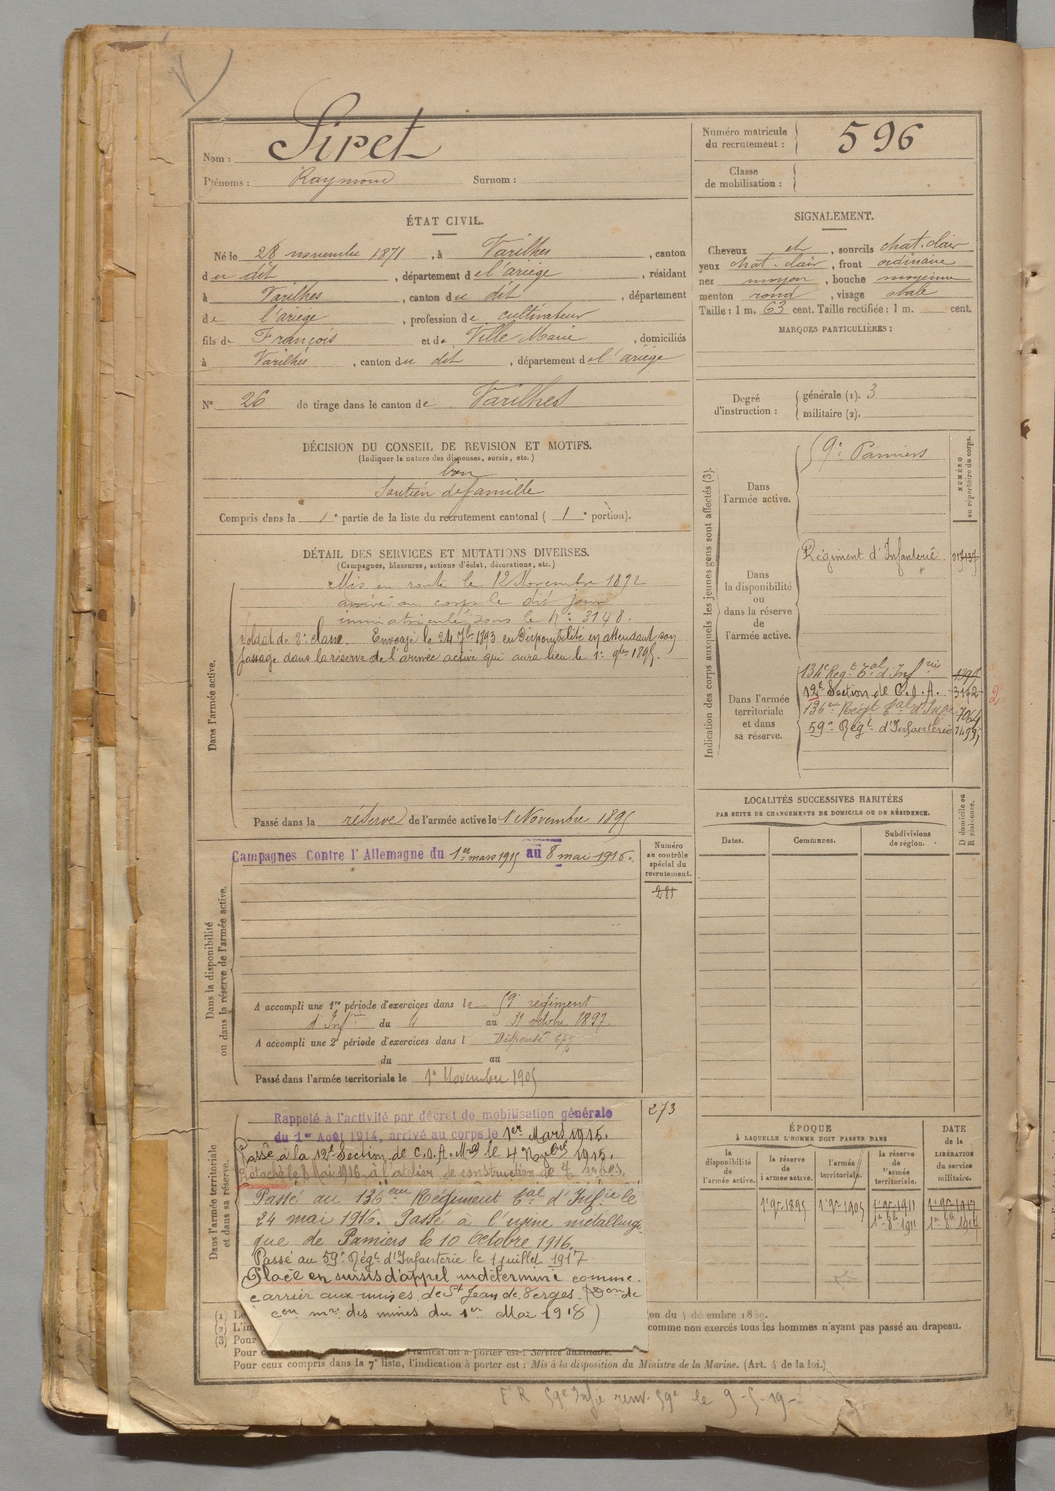 Nom : Siret
Prénoms : Raymond Surnom :
Numéro matricule du recrutement : 596
Classe de mobilisation :
ÉTAT CIVIL.
Né le 28 novembre 1871, à Varilhes, canton
du dit, département de l'ariège, résidant
à Varilhes, canton du dit, département
de l'ariège, profession de cultivateur
fils de François et de Ville Marie, domiciliés
à Varilhes, canton du dit, département de l'ariège
N° 26 de tirage dans le canton de Varilhes
SIGNALEMENT.
Cheveux et, sourcils chat. clair
yeux chat. clair, front ordinaire
nez moyen, bouche moyenne
menton rond, visage ovale
Taille : 1 m. 63 cent. Taille rectifiée : 1 m. cent.
MARQUES PARTICULIÈRES :
Degré d'instruction : générale (1). 3
militaire (2).
DÉCISION DU CONSEIL DE REVISION ET MOTIFS.
(Indiquer la nature des dispenses, sursis, etc.)
bon
Soutien de famille
Compris dans la 1e partie de la liste du recrutement cantonal ( 1e portion).
DÉTAIL DES SERVICES ET MUTATIONS DIVERSES.
(Campagnes, blessures, actions d'éclat, décorations, etc.)
Dans l'armée active.
Mis en route le 12 Novembre 1892
arrivé au corps le dit jour
immatriculé sous le n° 3148.
Soldat de 2e classe. Envoyé le 24 7bre 1893 en disponibilité en attendant son
passage dans la réserve de l'armée active qui aura lieu le 1er 9bre 1895.
Passé dans la réserve de l'armée active le 1 Novembre 1895
Indication des corps auxquels les jeunes gens sont affectés (3).
NUMÉRO au répertoire du corps.
Dans l'armée active.
59e Pamiers
Dans la disponibilité ou dans la réserve de l'armée active.
Régiment d'Infanterie
Dans l'armée territoriale et dans sa réserve.
134e Regt Tal d'Infrie
12e Section de C.O.A. 3142
136eme Régt Tal d'Infie
59e Régt d'Infanterie
2
LOCALITÉS SUCCESSIVES HABITÉES
PAR SUITE DE CHANGEMENTS DE DOMICILE OU DE RÉSIDENCE.
Dates. Communes. Subdivisions de région. D domicile ou R résidence.
Dans la disponibilité ou dans la réserve de l'armée active.
Campagnes Contre l'Allemagne du 1er mars 1915 au 8 mai 1916.
Numéro au contrôle spécial du recrutement.
281
A accompli une 1re période d'exercices dans le 59e régiment
d'Infrie du au 11 octobre 1897
A accompli une 2e période d'exercices dans l Dispensé
du au
Passé dans l'armée territoriale le 1er Novembre 1905
Dans l'armée territoriale et dans sa réserve.
273
Rappelé à l'activité par décret de mobilisation générale
du 1er Août 1914, arrivé au corps le 1er Mars 1915.
Passé à la 12e Section de C.O.A. le 4 Novbre 1915.
Détaché le 8 Mai 1916 à l'atelier de construction de Tarbes.
Passé au 136eme Régiment Tal d'Infie le
24 mai 1916. Passé à l'usine métallurgi-
que de Pamiers le 10 Octobre 1916.
Passé au 59e Régt d'Infanterie le 1 juillet 1917
Placé en sursis d'appel indéterminé comme
carrier aux mines de St Jean de Verges.
des mines du 1er Mai 1918)
ÉPOQUE
À LAQUELLE L'HOMME DOIT PASSER DANS
DATE de la LIBÉRATION du service militaire.
la disponibilité de l'armée active.
la réserve de l'armée active.
l'armée territoriale.
la réserve de l'armée territoriale.
1er 9bre 1895 1er 9bre 1905
(1)
(2)
(3) Pour
comme non exercés tous les hommes n'ayant pas passé au drapeau.
Service auxiliaire.
Pour ceux compris dans la 7e liste, l'indication à porter est : Mis à la disposition du Ministre de la Marine. (Art. 4 de la loi.)
59e Infie 59e le 9-5-19-